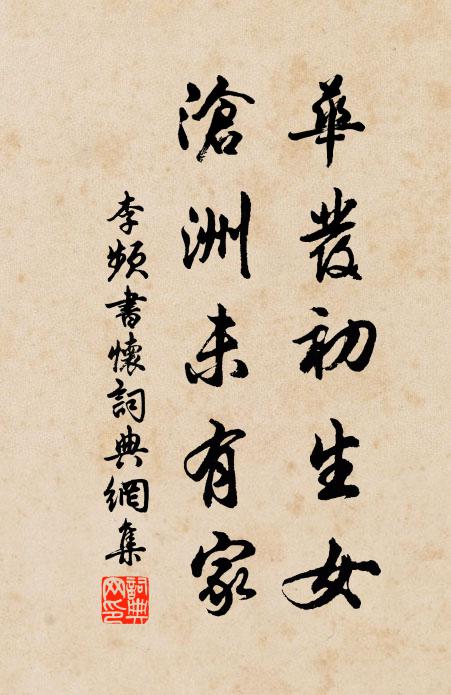 華發初生女
滄洲未有家
李頻書懷詞典網集
詞典
网印